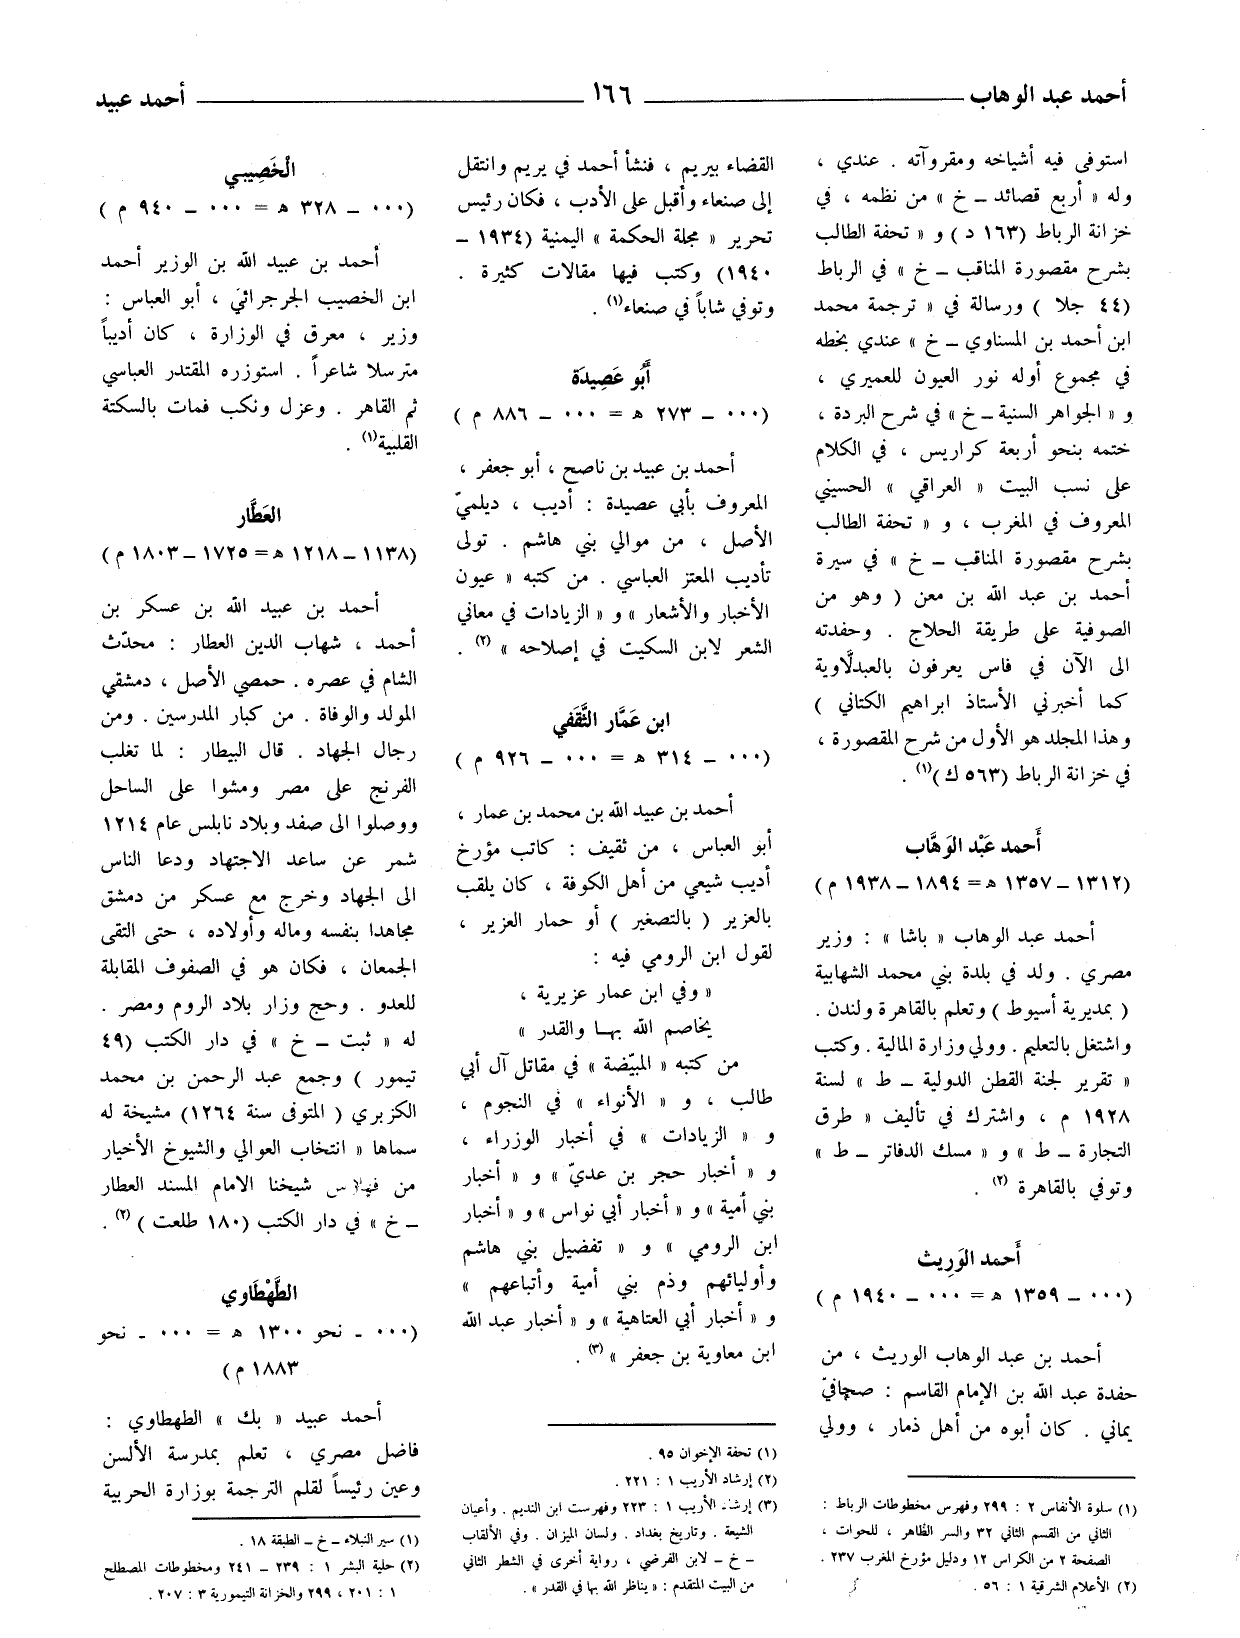 أحمد عبد الوهاب ١٦٦ أحمد عبيد
استوفى فيه أشياخه ومقروآته . عندي ،
وله « أربع قصائد ــ خ » من نظمه ، في
خزانة الرباط (١٦٣ د) و « تحفة الطالب
بشرح مقصورة المناقب ــ خ » في الرباط
(٤٤ جلا ) ورسالة في « ترجمة محمد
ابن أحمد بن المسناوي ــ خ » عندي بخطه
في مجموع أوله نور العيون للعميري ،
و « الجواهر السنية ــ خ » في شرح البردة ،
ختمه بنحو أربعة كراريس ، في الكلام
على نسب البيت « العراقي » الحسيني
المعروف في المغرب ، و « تحفة الطالب
بشرح مقصورة المناقب ــ خ » في سيرة
أحمد بن عبد الله بن معن ( وهو من
الصوفية على طريقة الحلاج . وحفدته
الى الآن في فاس يعرفون بالعبدلَّاوية
كما أخبرني الأستاذ ابراهيم الكتاني )
وهذا المجلد هو الأول من شرح المقصورة ،
في خزانة الرباط (٥٦٣ ك)(١) .
أَحمد عَبْد الوَهَّاب
(١٣١٢ ــ ١٣٥٧ هـ = ١٨٩٤ ــ ١٩٣٨ م)
أحمد عبد الوهاب « باشا » : وزير
مصري . ولد في بلدة بني محمد الشهابية
( بمديرية أسيوط ) وتعلم بالقاهرة ولندن .
واشتغل بالتعليم . وولي وزارة المالية . وكتب
« تقرير لجنة القطن الدولية ــ ط » لسنة
١٩٢٨ م ، واشترك في تأليف « طرق
التجارة ــ ط » و « مسك الدفاتر ــ ط »
وتوفي بالقاهرة (٢) .
أَحمد الوَرِيث
(٠٠٠ ــ ١٣٥٩ هـ = ٠٠٠ ــ ١٩٤٠ م)
أحمد بن عبد الوهاب الوريث ، من
حفدة عبد الله بن الإمام القاسم : صحافيّ
يماني . كان أبوه من أهل ذمار ، وولي
(١) سلوة الأنفاس ٢ : ٢٩٩ وفهرس مخطوطات الرباط :
الثاني من القسم الثاني ٣٢ والسر الظاهر ، للحوات ،
الصفحة ٢ من الكراس ١٢ ودليل مؤرخ المغرب ٢٣٧ .
(٢) الأعلام الشرقية ١ : ٥٦ .
القضاء بيريم ، فنشأ أحمد في يريم وانتقل
إلى صنعاء وأقبل على الأدب ، فكان رئيس
تحرير « مجلة الحكمة » اليمنية (١٩٣٤ ــ
١٩٤٠) وكتب فيها مقالات كثيرة .
وتوفي شاباً في صنعاء(١) .
أَبُو عَصِيدَة
(٠٠٠ ــ ٢٧٣ هـ = ٠٠٠ ــ ٨٨٦ م )
أحمد بن عبيد بن ناصح ، أبو جعفر ،
المعروف بأبي عصيدة : أديب ، ديلميّ
الأصل ، من موالي بني هاشم . تولى
تأديب المعتز العباسي . من كتبه « عيون
الأخبار والأشعار » و « الزيادات في معاني
الشعر لابن السكيت في إصلاحه » (٢) .
ابن عَمَّار الثَّقَفي
(٠٠٠ ــ ٣١٤ هـ = ٠٠٠ ــ ٩٢٦ م )
أحمد بن عبيد الله بن محمد بن عمار ،
أبو العباس ، من ثقيف : كاتب مؤرخ
أديب شيعي من أهل الكوفة ، كان يلقب
بالعزير ( بالتصغير ) أو حمار العزير ،
لقول ابن الرومي فيه :
« وفي ابن عمار عزيرية ،
يخاصم الله بهــا والقدر »
من كتبه « المبيّضة » في مقاتل آل أبي
طالب ، و « الأنواء » في النجوم ،
و « الزيادات » في أخبار الوزراء ،
و « أخبار حجر بن عديّ » و « أخبار
بني أمية » و « أخبار أبي نواس » و « أخبار
ابن الرومي » و « تفضيل بني هاشم
وأوليائهم وذم بني أمية وأتباعهم »
و « أخبار أبي العتاهية » و « أخبار عبد الله
ابن معاوية بن جعفر » (٣) .
(١) تحفة الإخوان ٩٥ .
(٢) إرشاد الأريب ١ : ٢٢١ .
(٣) إرشاد الأريب ١ : ٢٢٣ وفهرست ابن النديم . وأعيان
الشيعة . وتاريخ بغداد . ولسان الميزان . وفي الألقاب
ــ خ ــ لابن الفرضي ، رواية أخرى في الشطر الثاني
من البيت المتقدم : « يناظر الله بها في القدر » .
الْخَصِيبي
(٠٠٠ ــ ٣٢٨ هـ = ٠٠٠ ــ ٩٤٠ م )
أحمد بن عبيد الله بن الوزير أحمد
ابن الخصيب الجرجرائي ، أبو العباس :
وزير ، معرق في الوزارة ، كان أديباً
مترسلا شاعراً . استوزره المقتدر العباسي
ثم القاهر . وعزل ونكب فمات بالسكتة
القلبية(١) .
العَطَّار
(١١٣٨ ــ ١٢١٨ هـ = ١٧٢٥ ــ ١٨٠٣ م)
أحمد بن عبيد الله بن عسكر بن
أحمد ، شهاب الدين العطار : محدّث
الشام في عصره . حمصي الأصل ، دمشقي
المولد والوفاة . من كبار المدرسين . ومن
رجال الجهاد . قال البيطار : لما تغلب
الفرنج على مصر ومشوا على الساحل
ووصلوا الى صفد وبلاد نابلس عام ١٢١٤
شمر عن ساعد الاجتهاد ودعا الناس
الى الجهاد وخرج مع عسكر من دمشق
مجاهدا بنفسه وماله وأولاده ، حتى التقى
الجمعان ، فكان هو في الصفوف المقابلة
للعدو . وحج وزار بلاد الروم ومصر .
له « ثبت ــ خ » في دار الكتب (٤٩
تيمور ) وجمع عبد الرحمن بن محمد
الكزبري ( المتوفى سنة ١٢٦٤) مشيخة له
سماها « انتخاب العوالي والشيوخ الأخيار
من فهارس شيخنا الامام المسند العطار
ــ خ » في دار الكتب (١٨٠ طلعت ) (٢) .
الطَّهْطَاوي
(٠٠٠ ــ نحو ١٣٠٠ هـ = ٠٠٠ ــ نحو
١٨٨٣ م)
أحمد عبيد « بك » الطهطاوي :
فاضل مصري ، تعلم بمدرسة الألسن
وعين رئيساً لقلم الترجمة بوزارة الحربية
(١) سير النبلاء ــ خ ــ الطبقة ١٨ .
(٢) حلية البشر ١ : ٢٣٩ ــ ٢٤١ ومخطوطات المصطلح
١ : ٢٠١ ، ٢٩٩ والخزانة التيمورية ٣ : ٢٠٧ .